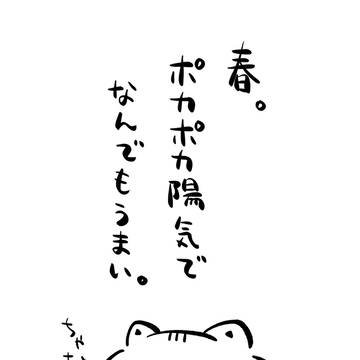 春。
ポカポカ陽気で
なんでもうまい。
ちゃ